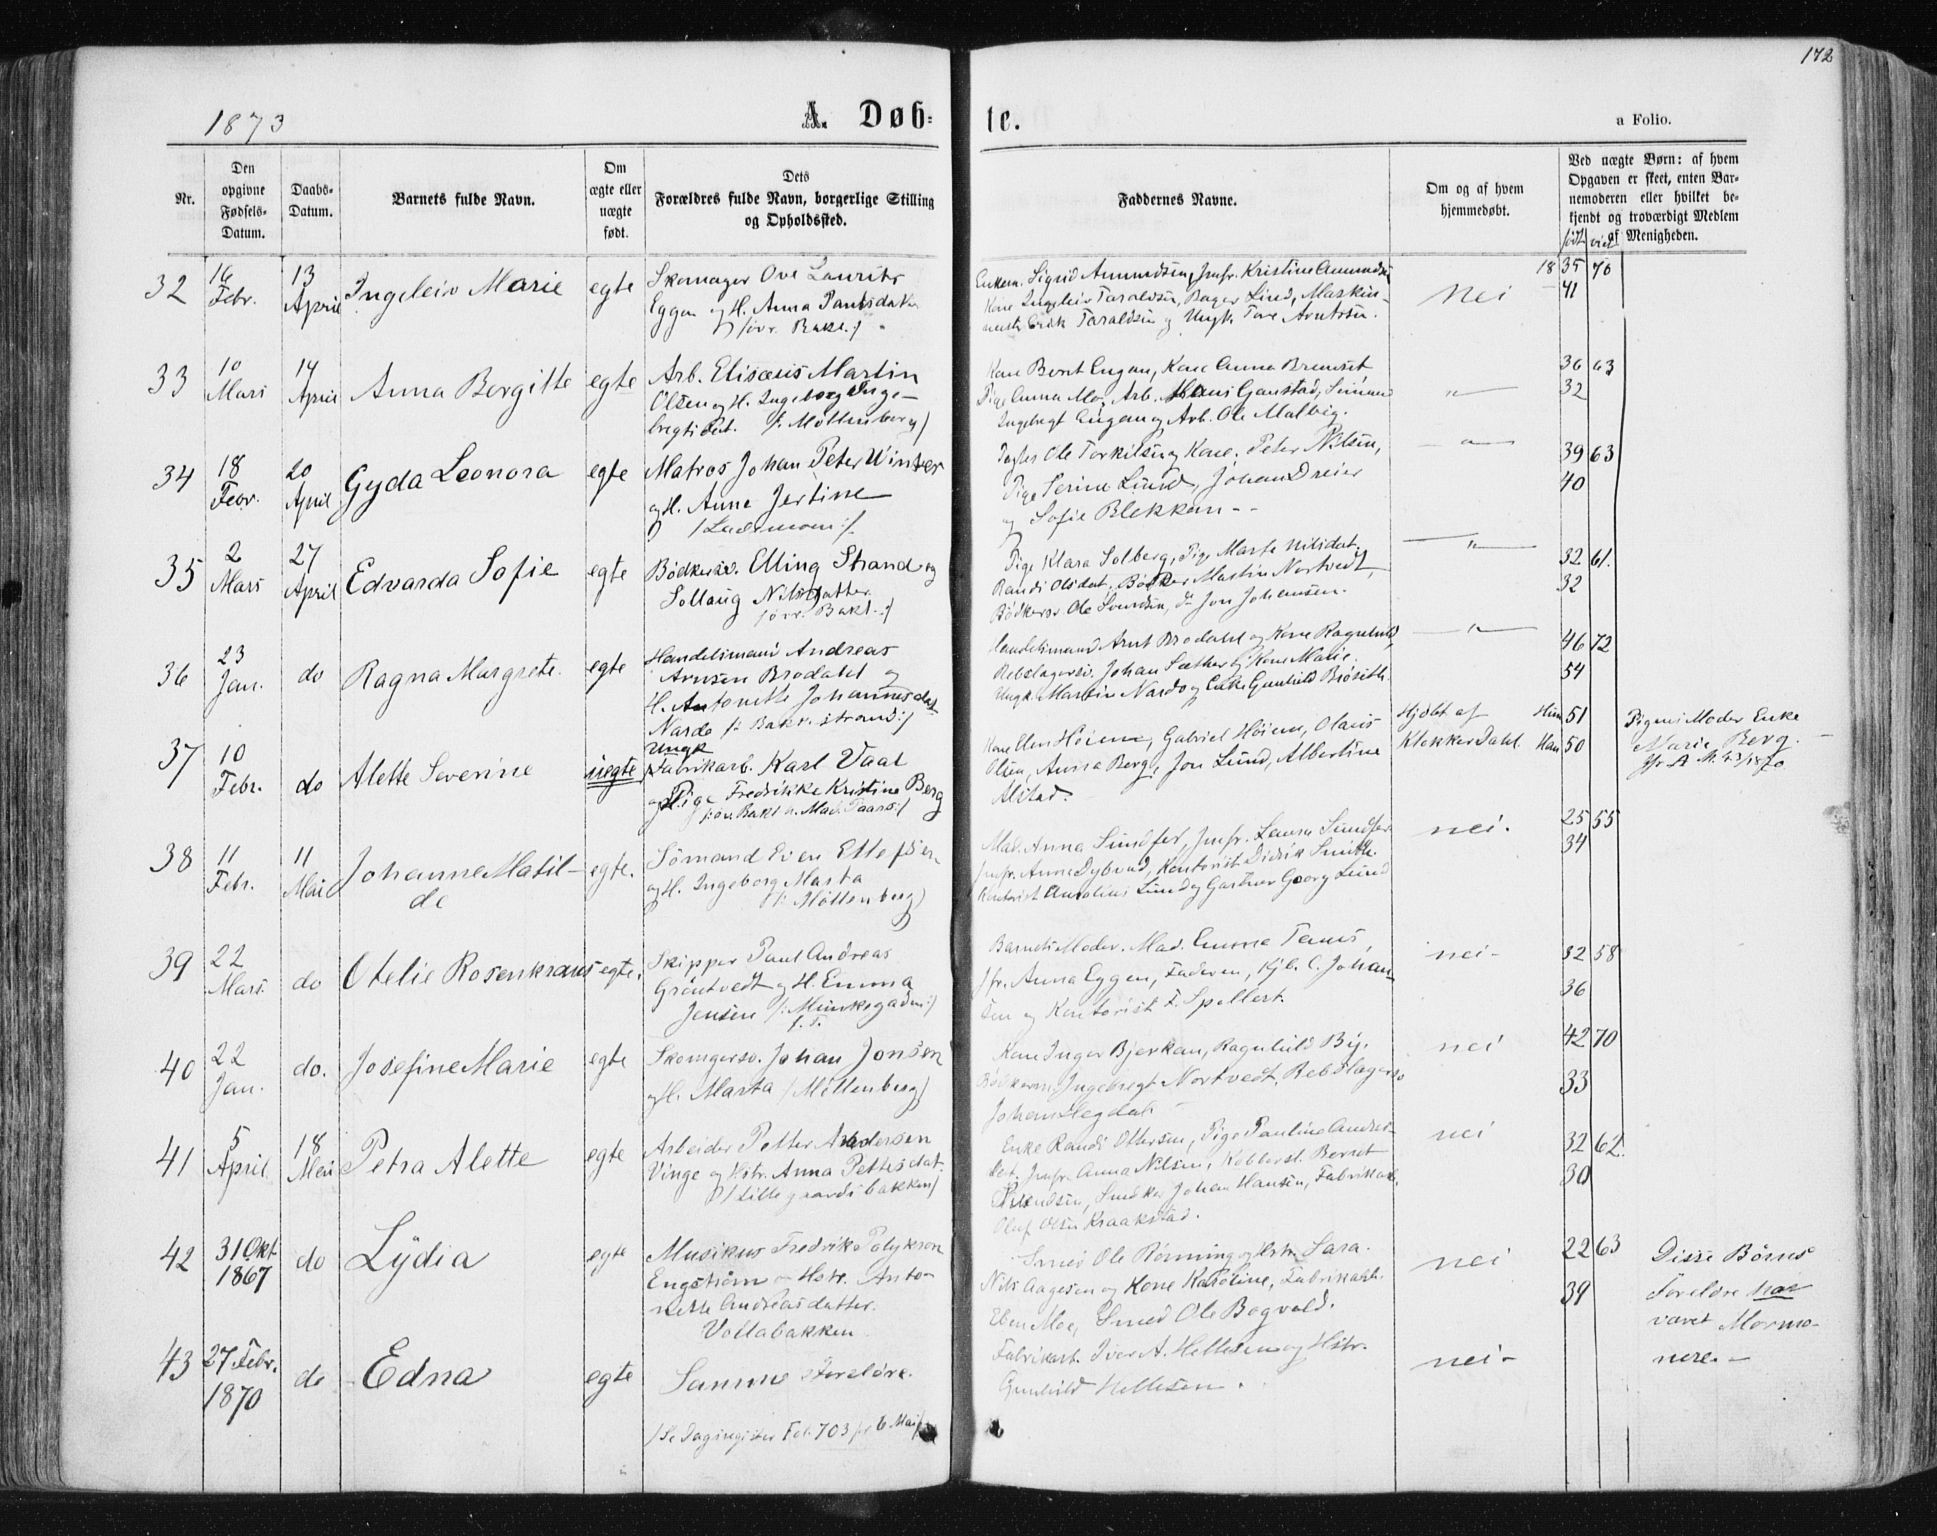 172
1873
A. Døb-
te.
a Folio.
Nr.
Den opgivne Fødsels-Datum.
Daabs-Datum.
Barnets fulde Navn.
Om ægte eller uægte født.
Dets Forældres fulde Navn, borgerlige Stilling og Opholdssted.
Faddernes Navne.
Om og af hvem hjemmedøbt.
Ved uægte Børn: af hvem Opgaven er skeet, enten Barnemoderen eller hvilket bekjendt og troværdigt Medlem af Menigheden.
født viet
32 16 Febr. 13 April Ingeleiv Marie egte
Skomager Ove Laurits
Eggen og H. Anna Paulsdatter
/:øvr. Bakl.:/
Enkem. Sigrid Amundsen, Jmfr. Kristine Amundsen
Kone Ingeleiv Taraldsen, Bager Lind, Maskin-
mestr Erik Taraldsen og Ungk. Tore Arntsen.
Nei
18 35 70
41
33 10 Mars 14 April Anna Bergitte egte
Arb. Elisæus Martin
Olsen og H. Ingeborg Inge-
bregtsdat. /: Møllenberg/
Kone Beret Engan, Kone Anna Bremset
Pige Anna Moe, Arb. Ganstad, Sömand
Ingebrigt Engan og Arb. Ole Malvig.
"
36 63
32
34 18 Febr. 20 April Gyda Leonora egte
Matros Johan Peter Winter
og H. Anne Jertine
/Ladermoen:/
Ole Torkilsen og Kone, Peter Nilsen,
Pige Serine Lund, Johan Dreier
og Sofie Blekkan - -
"
39 63
40
35 2 Mars 27 April Edvarda Sofie egte
Bödkersv. Elling Strand og
Sollaug Nilsdatter
/øvr. Bakl.:/
Pige Klara Solberg, Pige Marta Nilsdat.
Randi Olsdat, Bødker Martin Nortvedt,
Bödkersv Ole Svendsen, do Jon Johansen.
"
32 61.
32
36 23 Jan. do Ragna Margrete. egte
Handelsmand Andreas
Arnsen Brodahl og
H. Antonette Johannesdat
Nardo /: Bakl. strand:/
Handelsmand Arnt Brodahl og Kone Ragnhild,
Rebslagersv. Johan Sæther og Kone Marie.
Ungk. Martin Nardo og Enke Gunhild Brøseth.
"
46 72
54
37 10 Febr. do Alette Severine uegte
Ungk
Fabrikarb. Karl Vaal
og Pige Fredrikke Kristine Berg
/:øv. Bakl
Kone Elen Höiem, Gabriel Höiem, Olaus
Olsen, Anna Berg, Jon Lund, Albertine
Alstad.
Hjdbt af
Klokker Dahl.
Hun 51
Han 50
Pigens Moder Enke
Marie Berg.
38 11 Febr. 11 Mai Johanne Matil-
de
egte.
Sömand Even Ellefsen
og H. Ingeborg Marta
/: Möllenberg)
Mad. Anna Sundfær, Jmfr. Laura Sundfær
Jmfr. Anne Dybvad, Kontorist Didrik Smith.
Kontorist Aurelius Lund og Gartner Georg Lund
nei.
25 55
34
39 22 Mars. do Otelie Rosenkrans egte.
Skipper Paul Andreas
Gröntvedt og H. Emma
Jensen /: Munkegaden:/
f. T.
Barnets Moder. Mad. Emma Taus,
Jfr. Anna Eggen, Faderen, Kjb. C. Johan-
sen og Kontorist F. Spellert.
nei-
32 58
36
40 22 Jan. do. Josefine Marie egte
Skomgersv. Johan Jonsen
og H. Marta /Möllenberg/
Kone Inger Bjerkan, Ragnhild By,
Bödkersv. Ingebregt Nortvedt, Rebslagersv
Johan Hegdal -
nei
42 70
33
41 5 April. 18 Mai Petra Alette egte
Arbeider Petter Andersen
Vinge og Hstr. Anna Pettersdat.
/: Lillegaardsbakken/
Enke Randi Ottersen, Pige Pauline Anders-
dat. Jmfr. Anna Nilsen, Kobberst. Bernt
Svendsen, Snedker Johan Hansen, Fabrikarb.
Oluf Olsen Kraakstad.
nei
32 62.
30
42 31 Okt. 1867 do Lydia egte
Musikus Fredrik Polykron
Engström og Hstr. Anto-
nette Andreasdatter.
Vollabakken.
Smed Ole Rönning og Hstr. Sara.
Nils Aagesen og Kone Karoline, Fabrikarb.
Eben Moe, Smed Ole Bogvold.
nei
22 63
39
Disse Børns
Foreldre har
været Mormo-
nere. -
43 27 Febr. 1870 do Edna egte
Samme Foreldre.
/Se Dagregister Fol. 703 for 6 Mai/
Fabrikarb. Iver A. Hellesen og Hstr.
Gunhild Hellesen.
nei-